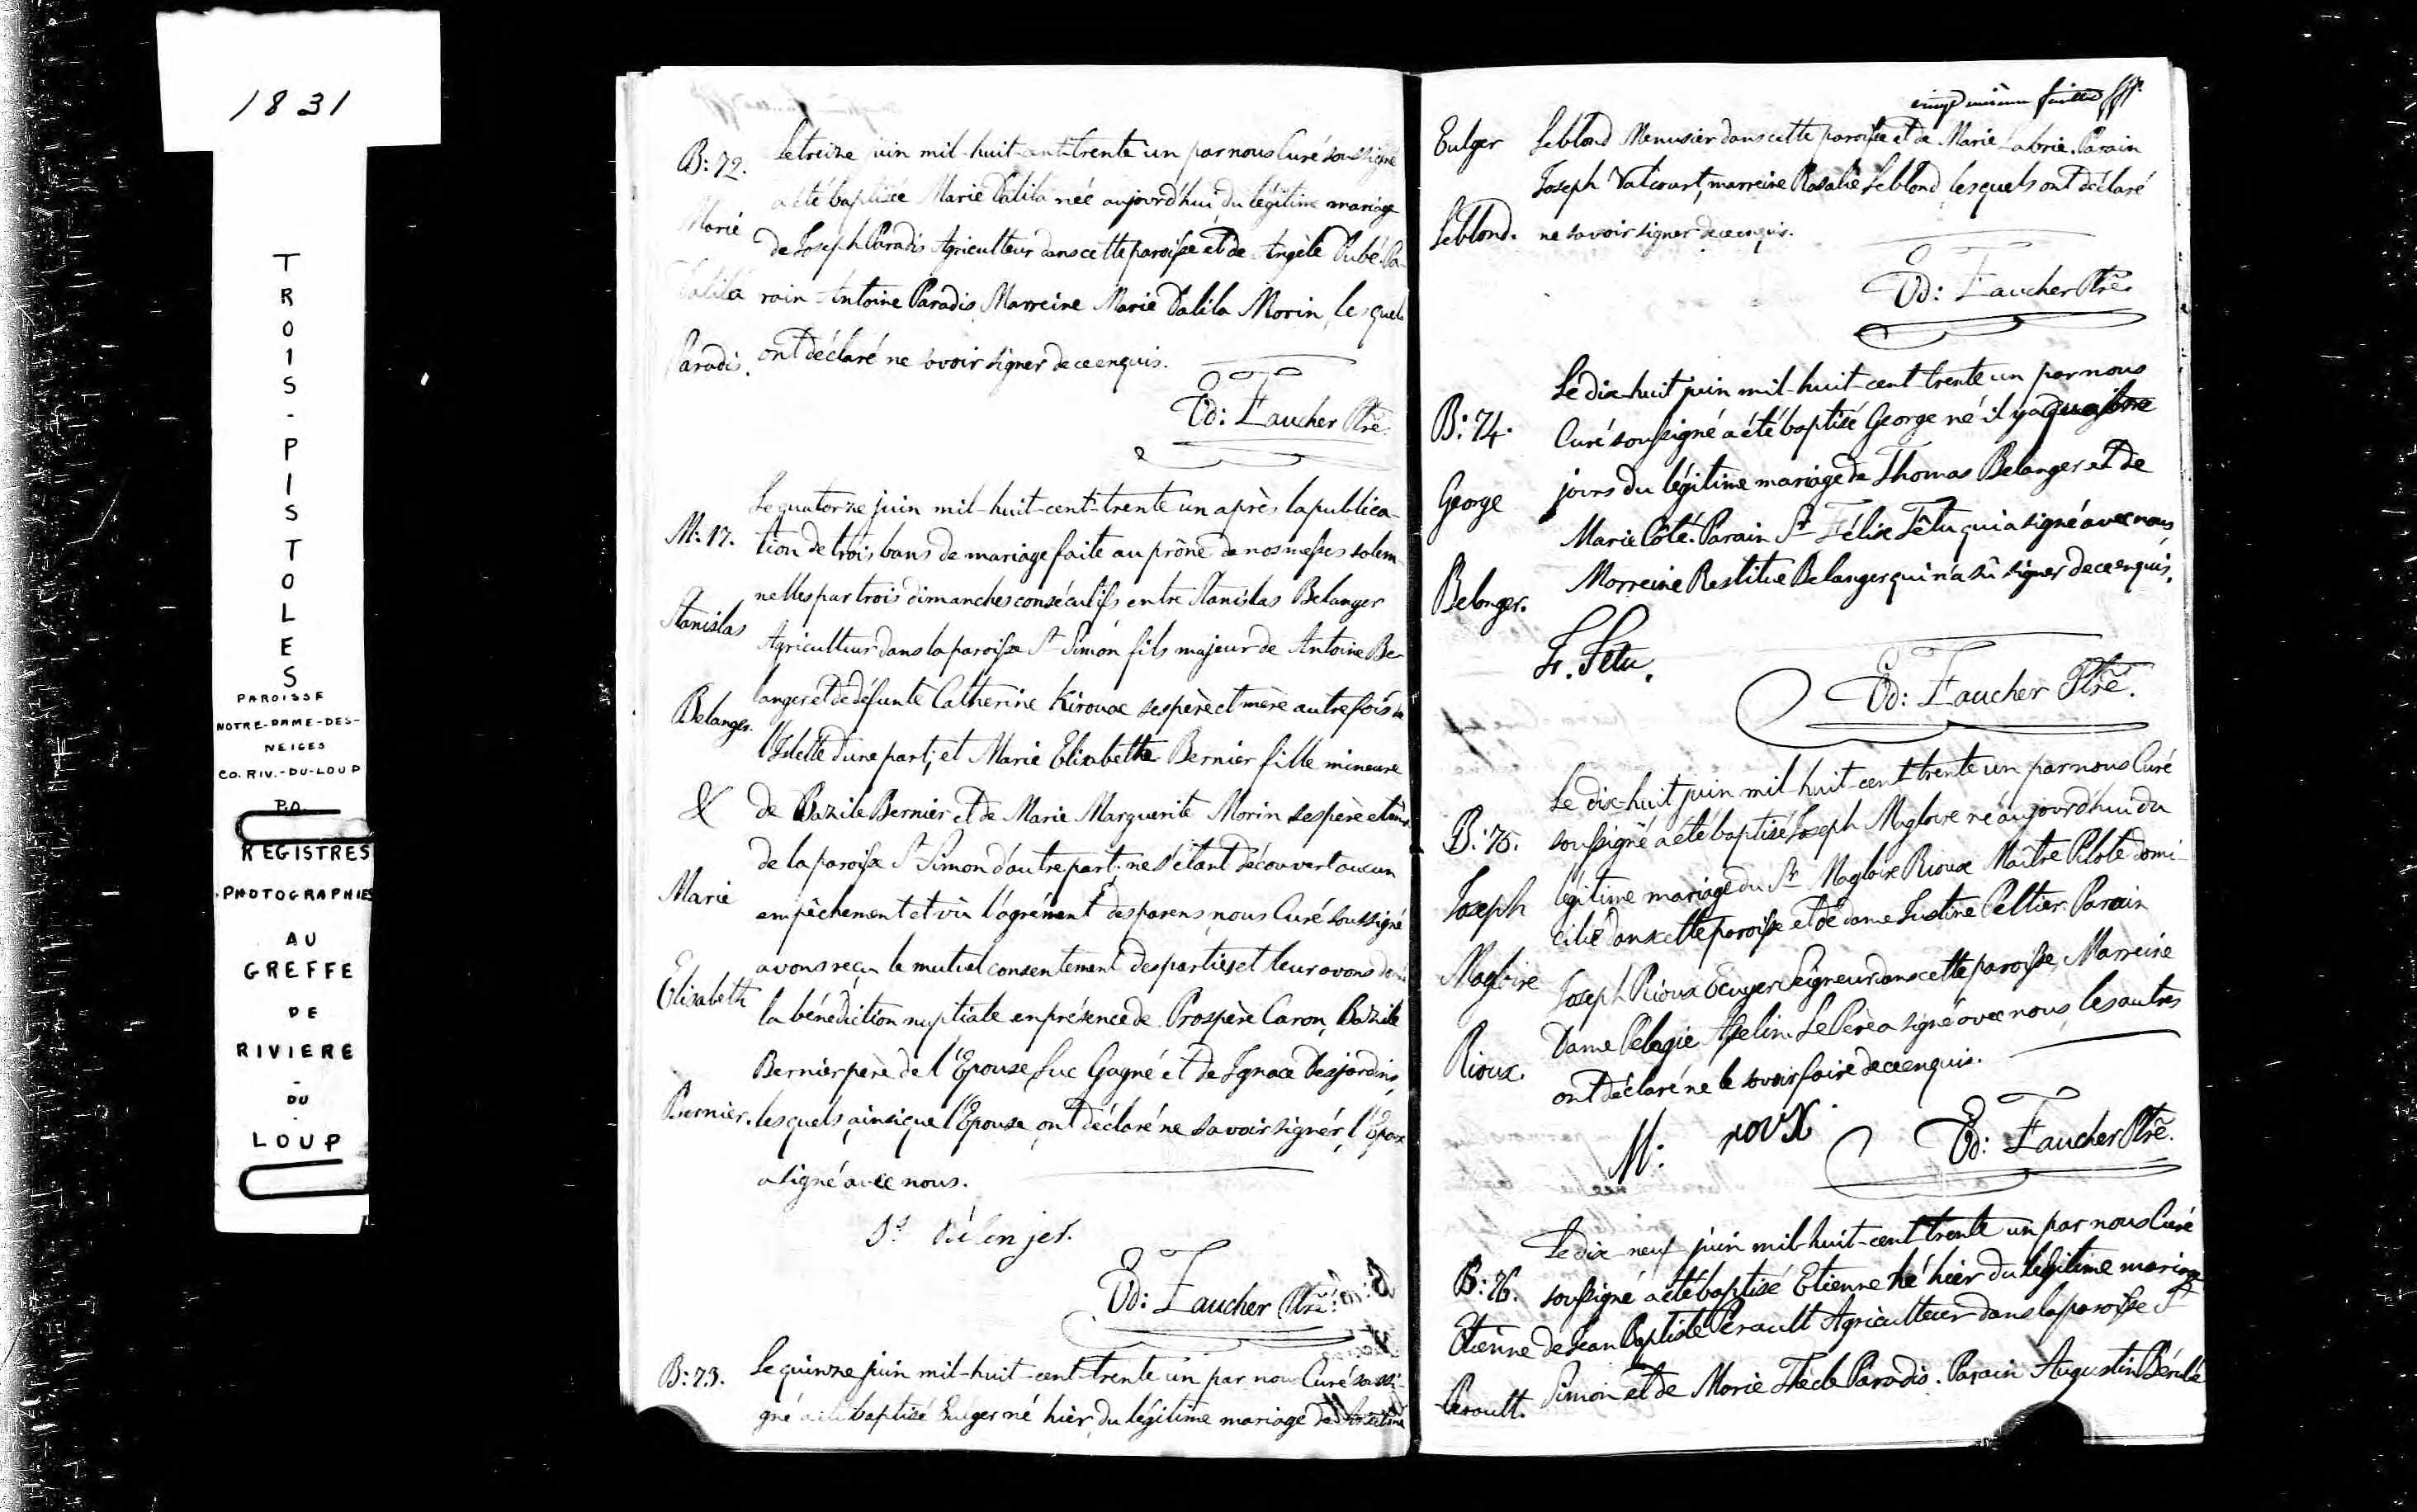 1831
TROIS-PISTOLES
PAROISSE
NOTRE-DAME-DES-
NEIGES
CO. RIV.-DU-LOUP
P.Q.
REGISTRES
PHOTOGRAPHIES
AU
GREFFE
DE
RIVIERE
-
DU
-
LOUP
B: 72.
Marie
Dalila
Paradis.
Le treize juin mil-huit-cent-trente un par nous Curé soussigné
a été baptisée Marie Dalila née aujourd'hui du légitime mariage
de Joseph Paradis Agriculteur dans cette paroisse et de Angèle Dubé. Pa-
rain Antoine Paradis Marreine Marie Dalila Morin, lesquels
ont déclaré ne savoir signer de ce enquis.
Ed: Faucher Ptre.
M: 17.
Stanislas
Belanger.
&
Marie
Elizabeth
Bernier.
Le quatorze juin mil-huit-cent-trente un après la publica-
tion de trois bans de mariage faite au prône de nos messes solem-
nelles par trois dimanches consécutifs entre Stanislas Belanger
Agriculteur dans la paroisse St Simon fils majeur de Antoine Be-
langer et de défunte Catherine Kirouac ses père et mère autrefois de
l'Islette d'une part; et Marie Elizabethe Bernier fille mineure
de Bazile Bernier et de Marie Marguerite Morin ses père et mère
de la paroisse St Simon d'autre part; ne s'étant découvert aucun
empêchement et vû l'agrément des parens, nous Curé soussigné
avons reçu le mutuel consentement des parties et leur avons donné
la bénédiction nuptiale en présence de Prospère Caron, Bazile
Bernier père de l'Epouse, Luc Gagné et de Ignace Desjardins,
lesquels, ainsi que l'Epouse, ont déclaré ne savoir signer, l'Epoux
a signé avec nous.
St Bélenjer.
Ed: Faucher Ptre.
B: 73.
Le quinze juin mil-huit-cent-trente un par nous Curé soussi-
gné a été baptisé Eulger né hier du légitime mariage de
feuillet
Eulger
Leblond.
Leblond Menusier dans cette paroisse et de Marie Labrie. Parain
Joseph Valcourt, marreine Rosalie Leblond, lesquels ont déclaré
ne savoir signer de ce enquis.
Ed: Faucher Ptre.
B: 74.
George
Belanger.
Le dix-huit juin mil-huit-cent trente un par nous
Curé soussigné a été baptisé George né il y a quatre
jours du légitime mariage de Thomas Belanger et de
Marie Côté. Parain Sr Félix Têtu qui a signé avec nous,
Marreine Restitue Belanger qui n'a sû signer de ce enquis.
F. Têtu.
Ed: Faucher Ptre.
B: 75.
Joseph
Magloire
Rioux.
Le dix-huit juin mil-huit-cent trente un par nous Curé
soussigné a été baptisé Joseph Magloire né aujourd'hui du
légitime mariage du Sr Magloire Rioux Maître Pilote domi-
cilié dans cette paroisse et de dame Justine Peltier. Parain
Joseph Rioux Ecuyer Seigneur dans cette paroisse, Marreine
Dame Pelagie Asselin. Le Père a signé avec nous, les autres
ont déclaré ne le savoir faire de ce enquis.
M: rouX
Ed: Faucher Ptre.
B: 76.
Etienne
Perault.
Le dix-neuf juin mil-huit-cent trente un par nous Curé
soussigné a été baptisé Etienne né hier du légitime mariage
de Jean Baptiste Perault Agriculteur dans la paroisse St
Simon et de Marie Thècle Paradis. Parain Augustin Bérubé